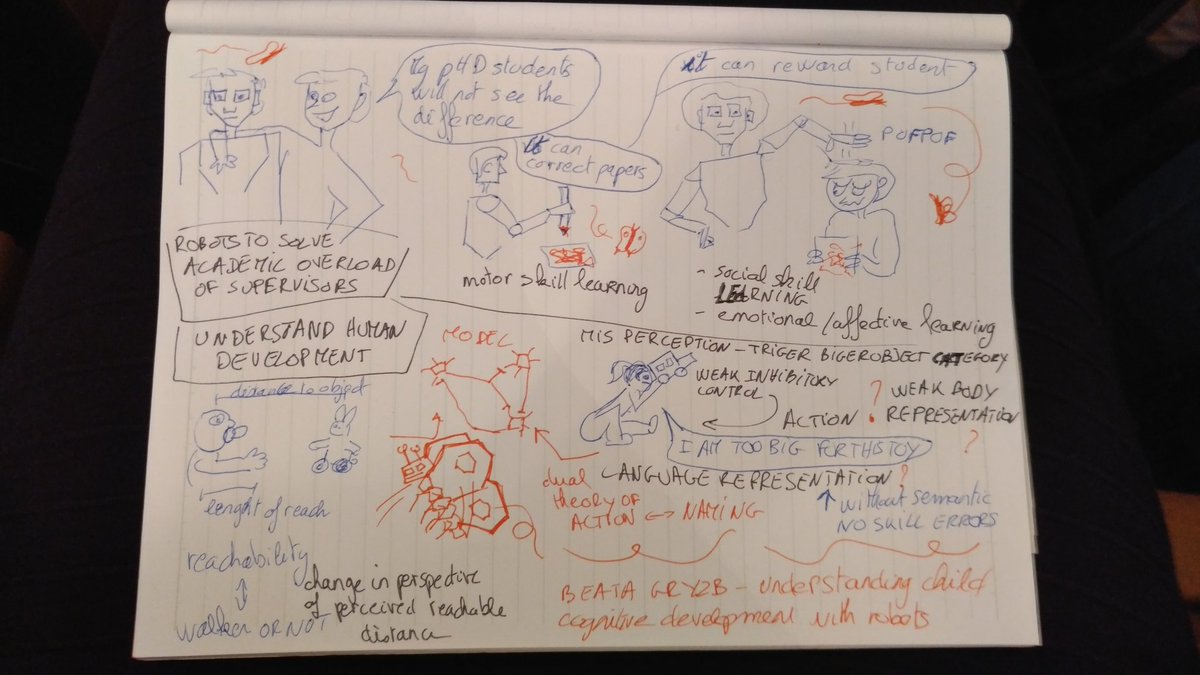 pHD students
will not see the
difference
It can
correct papers
It can reward student
POFPOF
ROBOTS TO SOLVE
ACADEMIC OVERLOAD
OF SUPERVISORS
motor skill learning
- social skill
LEARNING
- emotional/affective learning
UNDERSTAND HUMAN
DEVELOPMENT
distance to object
lenght of reach
reachability
walker OR NOT
change in perspective
of perceived reachable
distance
MODEL
MIS PERCEPTION - TRIGER BIGER OBJECT CATEGORY
WEAK INHIBITORY
CONTROL
ACTION
? WEAK BODY
REPRESENTATION
?
I AM TOO BIG FOR THIS TOY
LANGUAGE REPRESENTATION ?
without semantic
NO SKILL ERRORS
dual
theory of
ACTION ↔ NAMING
BEATA GRYZB - understanding child
cognitive development with robots